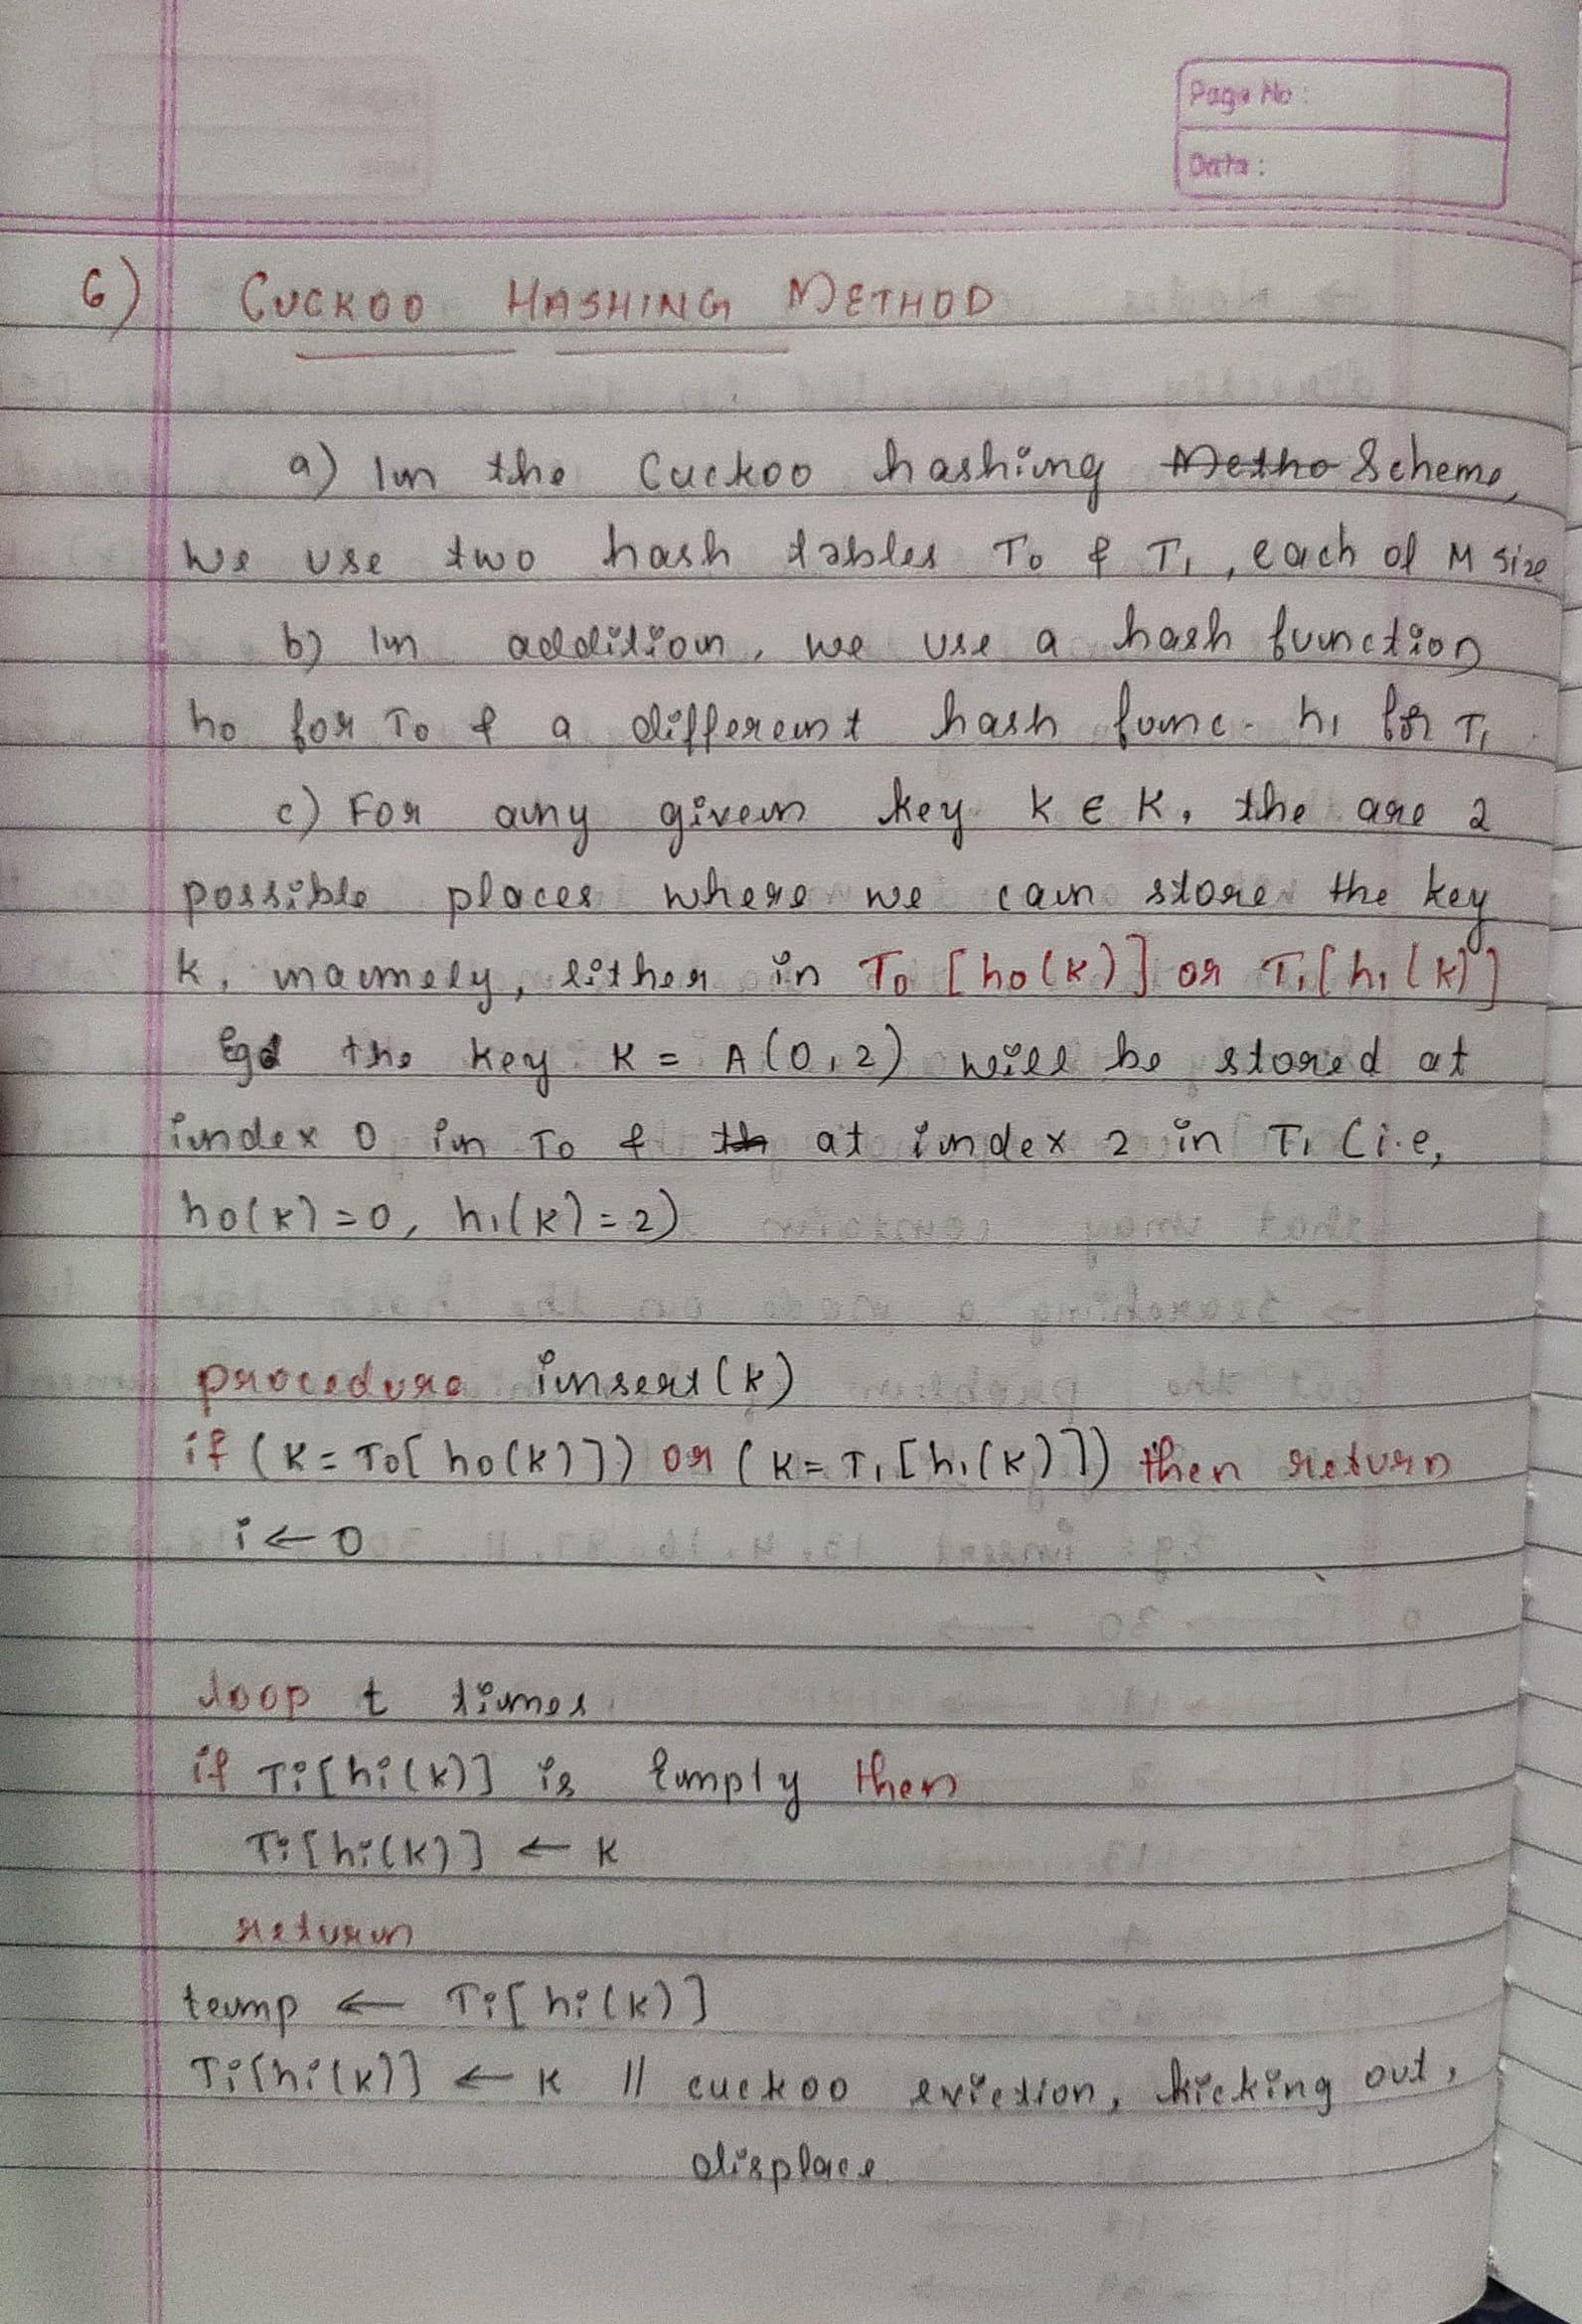 Page No:
Date:
6) CUCKOO HASHING METHOD
a) In the Cuckoo hashing Metho Scheme,
we use two hash tables T0 & T1, each of M size
b) In addition, we use a hash function
h0 for T0 & a different hash func. h1 for T1.
c) For any given key k ∈ K, the are 2
possible places where we can store the key
k, namely, either in T0 [h0(k)] or T1[h1(k)]
Eg the key K = A(0,2) will be stored at
index 0 in T0 & th at index 2 in T1 (i.e,
h0(k)=0, h1(k)=2)
procedure insert(k)
if (K=T0[h0(k)]) or (K=T1[h1(k)]) then return
i ← 0
loop t times
if Ti[hi(k)] is Empty then
Ti[hi(k)] ← K
return
temp ← Ti[hi(k)]
Ti[hi(k)] ← K // cuckoo eviction, kicking out,
displace